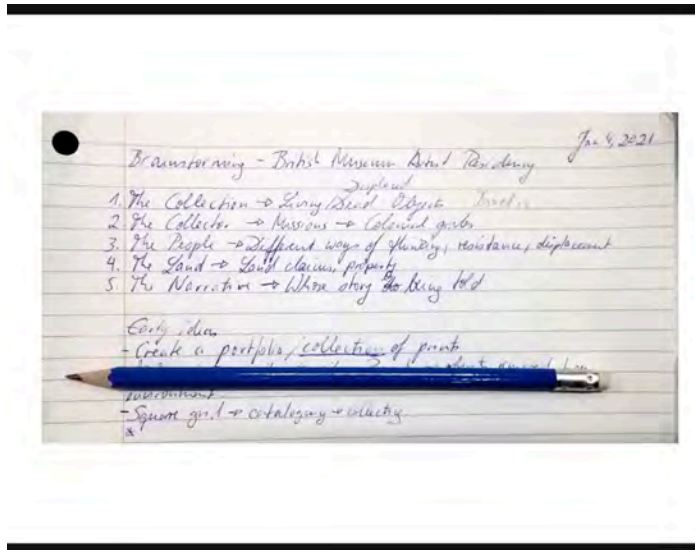 Jan 4, 2021
Brainstorming - British Museum Artist Residency
Displaced
1. The Collection → Living/Dead Objects
2. The Collector → Missions → Colonial
3. The People → Different ways of thinking, resistance, displacement
4. The Land → Land claims, property
5. The Narrative → Whose story being told
Early ideas
- Create a portfolio/collection of prints
environment
- Square grid → cataloguing → collecting
*